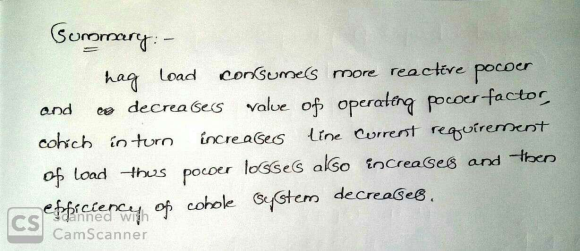 Summary:-
hag load consumes more reactive power
and decreases value of operating power factor,
which in turn increases line current requirement
of load thus power losses also increases and then
efficiency of whole system decreases.
CS Scanned with
CamScanner